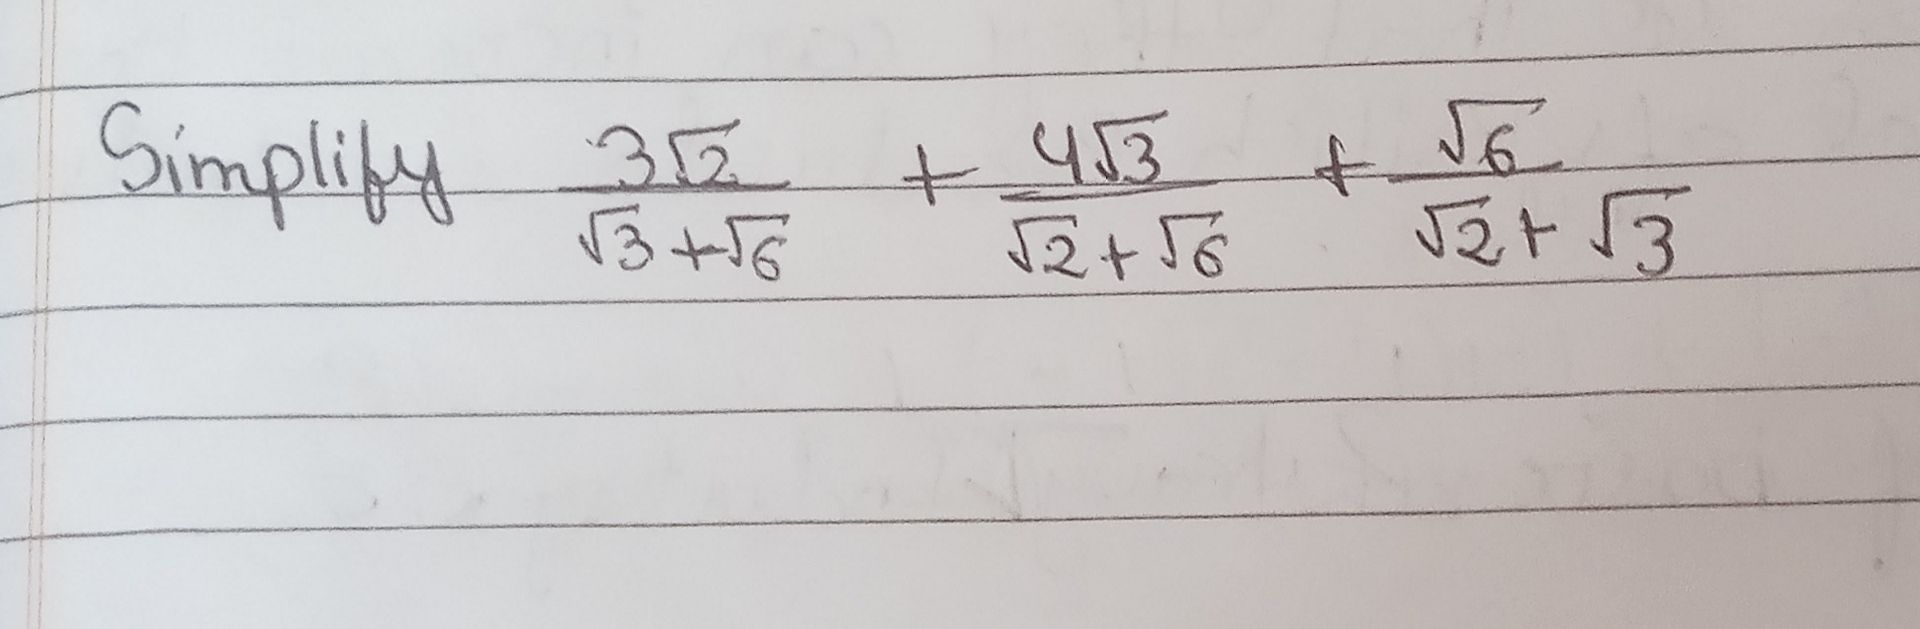 Simplify 3√2/(√3+√6) + 4√3/(√2+√6) + √6/(√2+√3)